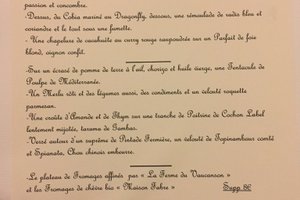 passion et concombre.
- Dessus, du Cobia mariné au Dragonfly, dessous, une rémoulade de radis bleu et
coriandre et le tout sous une fumette.
- Une chapelure de cacahuète au curry rouge saupoudrée sur un Parfait de foie
blond, oignon confit.
- Sur un écrasé de pomme de terre à l'ail, chorizo et huile vierge, une Tentacule de
Poulpe de Méditerranée.
- Un Merlu rôti et des légumes aussi, des condiments et un velouté roquette
parmesan.
- Une croûte d'Amande et de Thym sur une tranche de Poitrine de Cochon Label
lentement mijotée, tarama de Gambas.
- Versé autour d'un suprême de Pintade Fermière, un velouté de Topinambours comté
et Spianata, Chou chinois embeurré.
- Le plateau de Fromages affinés par « La Ferme du Vaucanson »
et les Fromages de chèvre bio « Maison Fabre » Supp. 8€